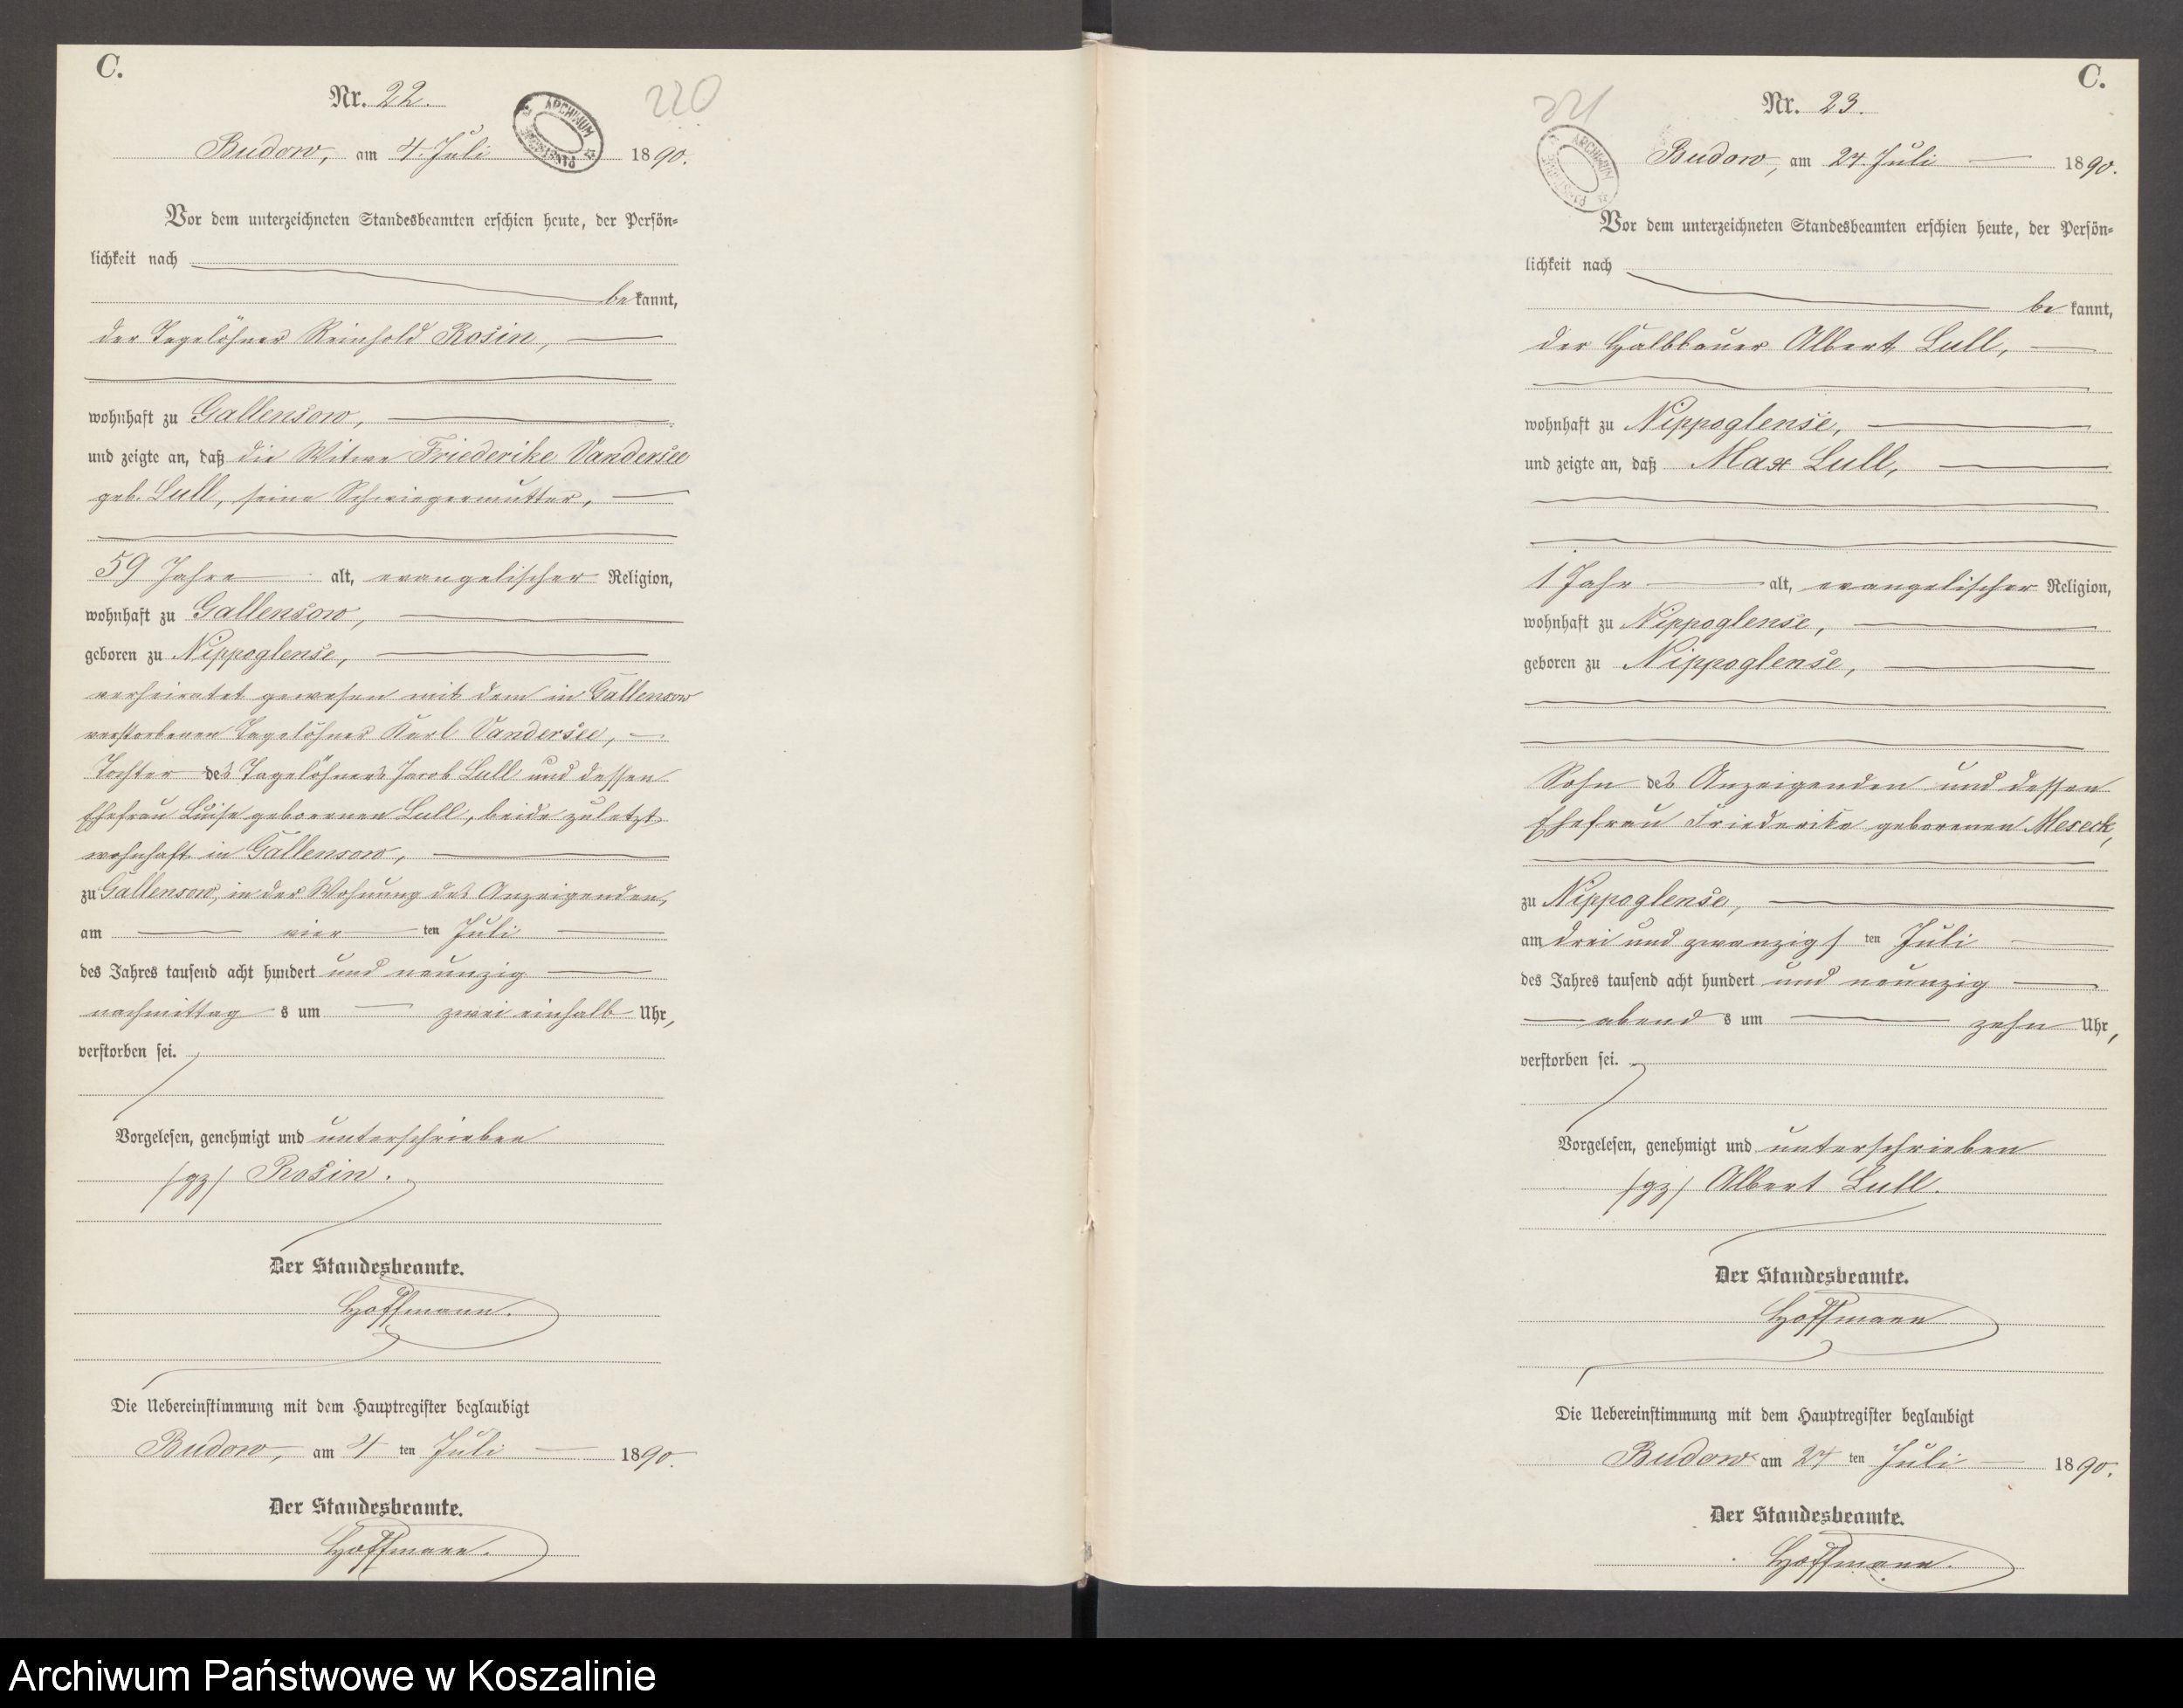 C.
Nr. 22.
220
ARCHIWUM
Budow, am 4. Juli 1890.
Vor dem unterzeichneten Standesbeamten erschien heute, der Persön-
lichkeit nach
bekannt,
der Tagelöhner Reinhold Rosin,
wohnhaft zu Gallensow,
und zeigte an, daß die Witwe Friederike Vandersee
geb. Lull, seine Schwiegermutter,
59 Jahre alt, evangelischer Religion,
wohnhaft zu Gallensow,
geboren zu Nippoglense,
verheiratet gewesen mit dem in Gallensow
verstorbenen Tagelöhner Karl Vandersee,
Tochter des Tagelöhners Jacob Lull und dessen
Ehefrau Luise geborenen Lull, beide zuletzt
wohnhaft in Gallensow,
zu Gallensow, in der Wohnung des Anzeigenden,
am vier ten Juli
des Jahres tausend acht hundert und neunzig
nachmittag s um zwei einhalb Uhr,
verstorben sei.
Vorgelesen, genehmigt und unterschrieben
/gz/ Rosin.
Der Standesbeamte.
Hoffmann.
Die Uebereinstimmung mit dem Hauptregister beglaubigt
Budow, am 4 ten Juli 1890.
Der Standesbeamte.
Hoffmann.
C.
Nr. 23.
221
ARCHIWUM
Budow, am 24. Juli 1890.
Vor dem unterzeichneten Standesbeamten erschien heute, der Persön-
lichkeit nach
be kannt,
der Halbbauer Albert Lull,
wohnhaft zu Nippoglense,
und zeigte an, daß Max Lull,
1 Jahr alt, evangelischer Religion,
wohnhaft zu Nippoglense,
geboren zu Nippoglense,
Sohn des Anzeigenden und dessen
Ehefrau Friederike geborenen Meseck,
zu Nippoglense,
am drei und zwanzigs ten Juli
des Jahres tausend acht hundert und neunzig
abend s um zehn Uhr,
verstorben sei.
Vorgelesen, genehmigt und unterschrieben
/gz/ Albert Lull.
Der Standesbeamte.
Hoffmann
Die Uebereinstimmung mit dem Hauptregister beglaubigt
Budow am 24 ten Juli 1890.
Der Standesbeamte.
Hoffmann.
Archiwum Państwowe w Koszalinie